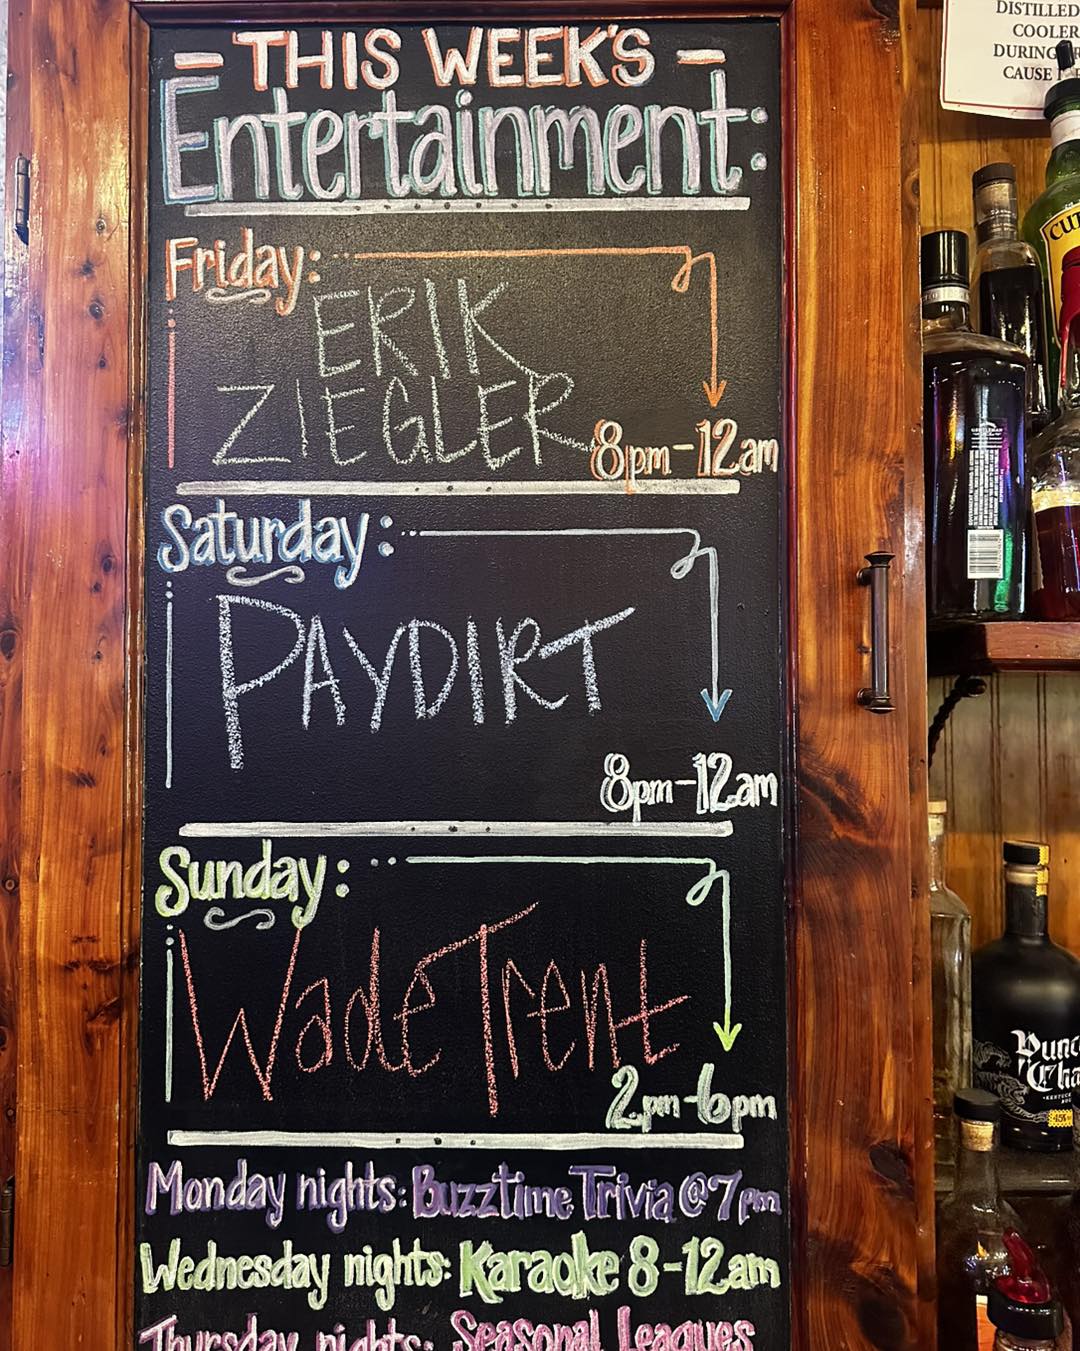 DISTILLED
COOLER
DURING
CAUSE
- THIS WEEK'S -
Entertainment:
Friday:
ERIK
ZIEGLER
8pm-12am
Saturday:
PAYDIRT
8pm-12am
Sunday:
Wade Trent
2pm-6pm
Monday nights: Buzztime Trivia @ 7pm
Wednesday nights: Karaoke 8-12am
Thursday nights: Seasonal Leagues